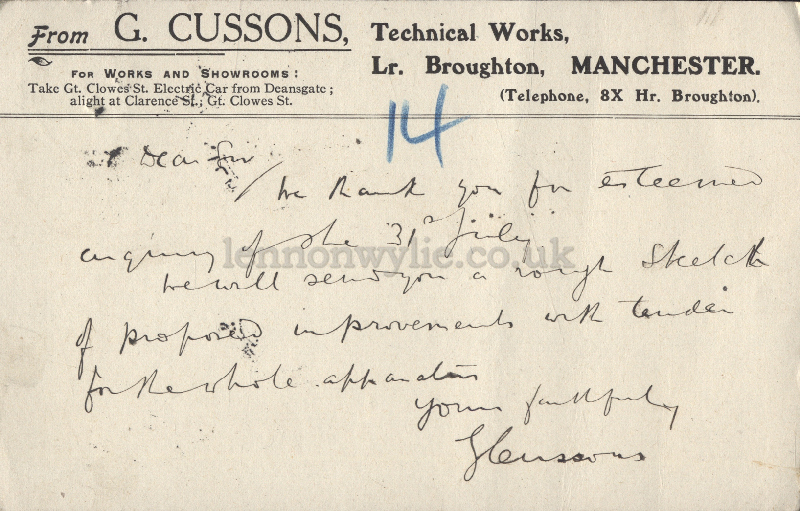 From G. CUSSONS, Technical Works,
Lr. Broughton, MANCHESTER.
FOR WORKS AND SHOWROOMS:
Take Gt. Clowes St. Electric Car from Deansgate;
alight at Clarence St., Gt. Clowes St.
(Telephone, 8X Hr. Broughton).
14
Dear Sir
We thank you for esteemed
enquiry of the 31st July
lennonwylie.co.uk
We will send you a rough Sketch
of proposed improvements with tender
for the whole apparatus
Yours faithfully
G Cussons